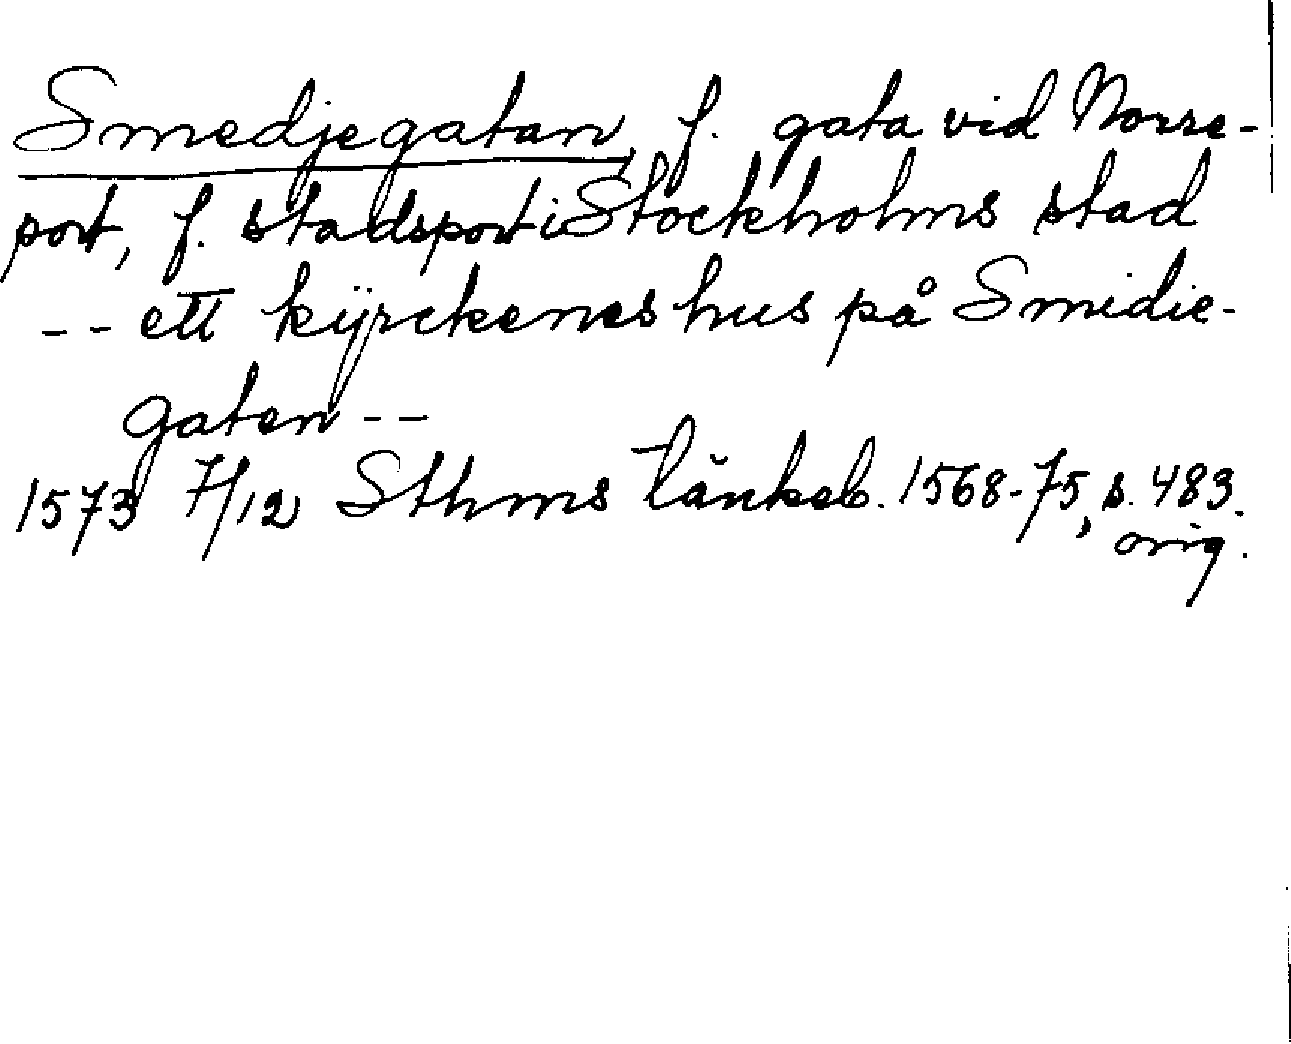 Smedjegatan, f. gata vid Norre-
port, f. stadsport i Stockholms stad
-- ett kÿrckenes hus på Smidie-
gaten --
1573 7/12 Sthms tänkeb. 1568-75, s. 483.
orig.